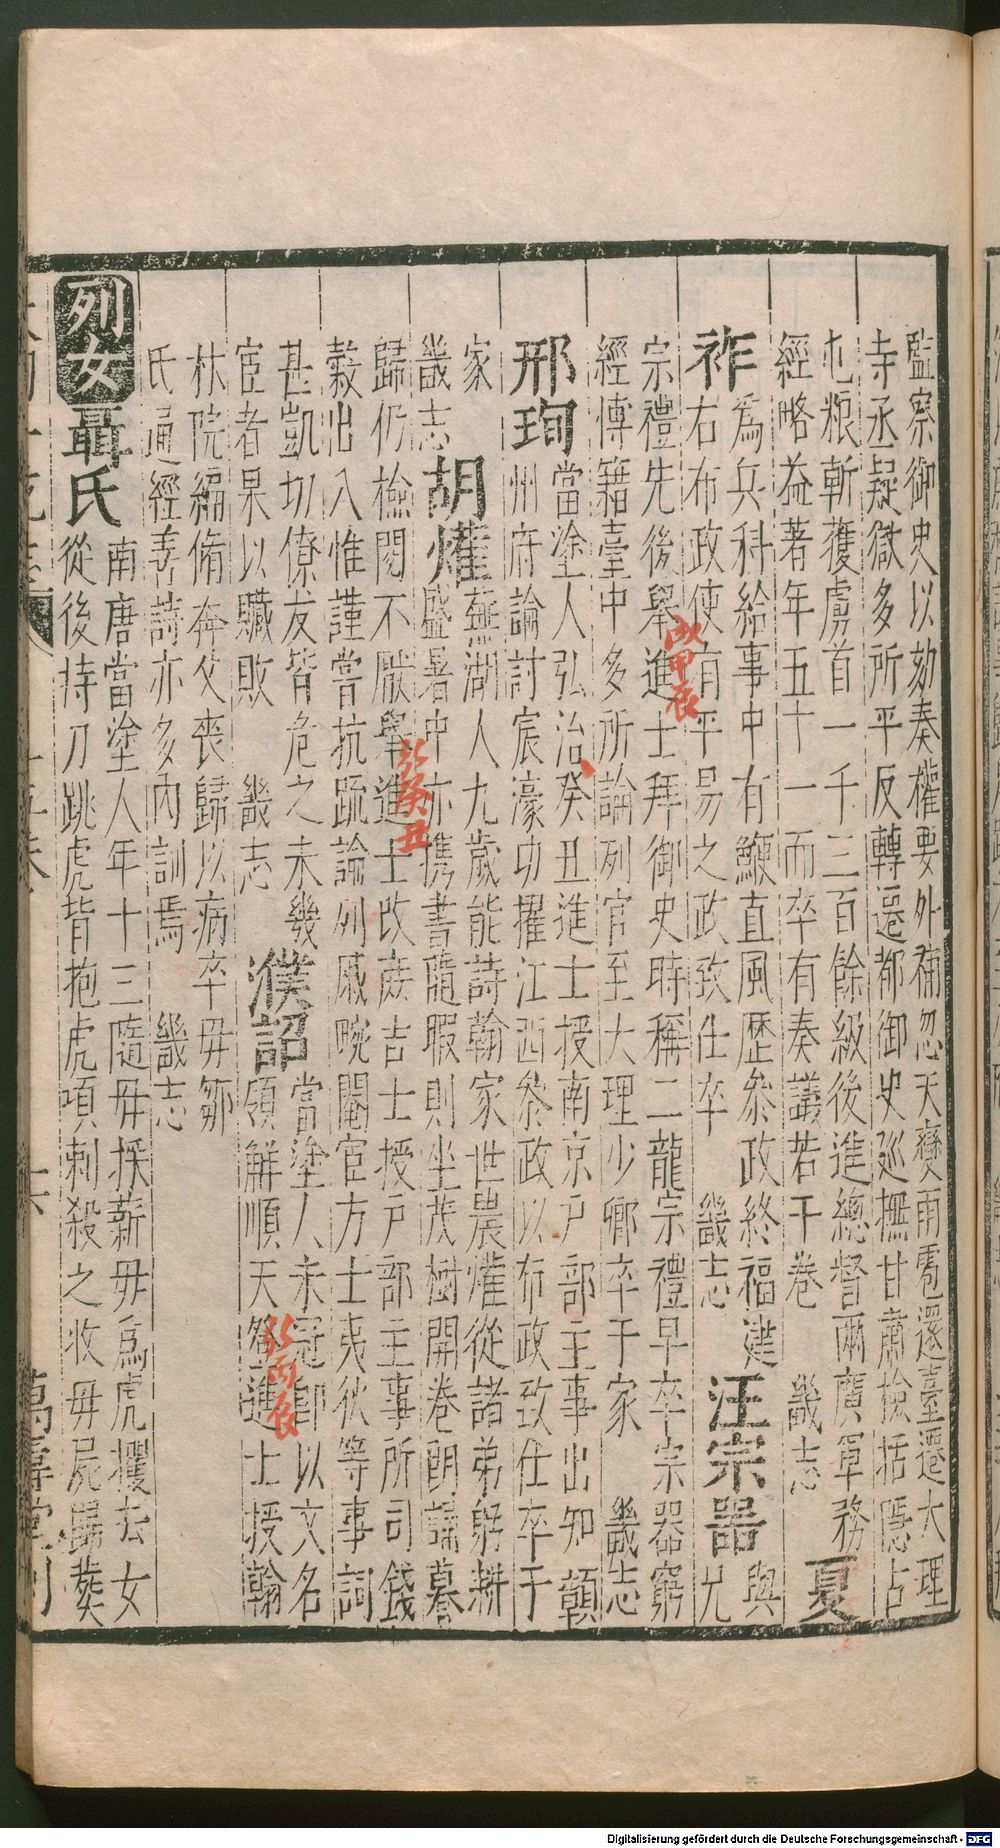 監察御史以劾奏權要外補忽天變雨雹還臺遷大理
寺丞疑獄多所平反轉遷都御史廵撫甘肅撿括隱占
屯粮斬獲虜首一千三百餘級後進總督兩廣軍務
經略益著年五十一而卒有奏議若干卷 畿志
夏
祚
爲兵科給事中有鯁直風歷叅政終福建
右布政使有平易之政致仕卒 畿志
汪宗器
與
兄
宗禮先後舉進士拜御史時稱二龍宗禮早卒宗器窮
經傳籍臺中多所論列官至大理少卿卒于家 畿志
邢珣
當塗人弘治癸丑進士授南京戶部主事出知贛
州府論討宸濠功擢江西叅政以布政致仕卒于
家
畿志
胡爟
蕪湖人九歲能詩翰家世農爟從諸弟躬耕
盛暑中亦携書隨暇則坐茂樹開卷朗誦暮
歸仍檢閱不厭舉進士改庶吉士授戶部主事所司錢
穀出入惟謹嘗抗疏論列戚畹閹宦方士夷狄等事詞
甚凱切僚友皆危之未幾
宦者果以贓敗 畿志
濮韶
當塗人未冠即以文名
領解順天登進士授翰
林院編脩奔父喪歸以病卒毋鄒
氏通經善詩亦多內訓焉 畿志
列女
聶氏
南唐當塗人年十三隨毋採薪毋爲虎攫去女
從後持刀跳虎背抱虎項刺殺之收毋屍歸葬
成甲辰
弘癸丑
弘丙辰
萬壽堂刊
Digitalisierung gefördert durch die Deutsche Forschungsgemeinschaft - DFG